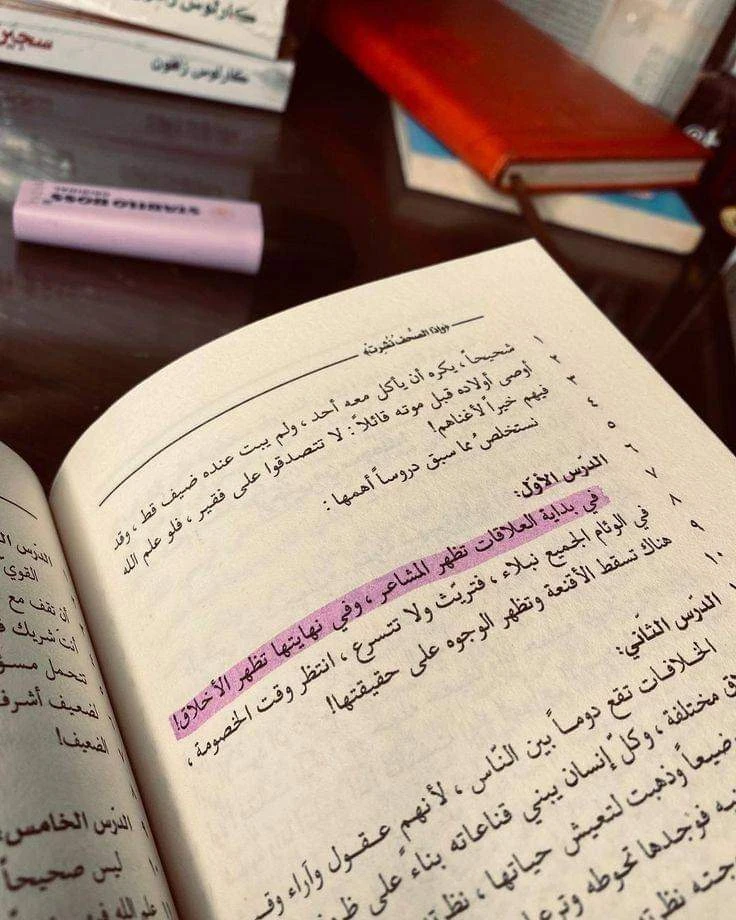 كارلوس زافون
سجين
كارلوس زافون
STABILO BOSS
ORIGINAL
﴿وإذا الصّحف نُشِرت﴾
١ شحيحاً، يكره أن يأكل معه أحد، ولم يبت عنده ضيف قط، وقد
٢ أوصى أولاده قبل موته قائلاً: لا تتصدقوا على فقير، فلو علم الله
٣ فيهم خيراً لأغناهم!
٤ نستخلصُ مما سبق دروساً أهمها:
٥
٦ الدّرس الأوّل:
٧ في بداية العلاقات تظهر المشاعر، وفي نهايتها تظهر الأخلاق!
٨ في الوئام الجميع نبلاء، فتريّث ولا تتسرع، انتظر وقت الخصومة،
٩ هناك تسقط الأقنعة وتظهر الوجوه على حقيقتها!
١٠
الدّرس الثّاني:
الخلافات تقع دوماً بين النّاس، لأنهم عقول وآراء
مختلفة، وكلّ إنسان يبني قناعاته بناءً على
وذهبت لتعيش حياتها،
فوجدها تحوطه
الدّرس
القوي
أن تقف مع
أنت شريك
تتحمل
لضعيف أشرف
الضعيف!
الدّرس الخامس
ليس صحيحاً